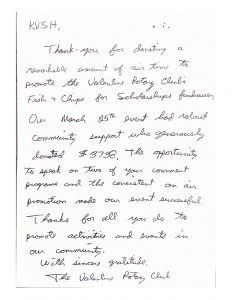 KVSH,
Thank-you for donating a
remarkable amount of air time to
promote the Valentine Rotary Club's
Fish & Chips for Scholarships fundraiser.
Our March 25th event had robust
community support who generously
donated $3798. The opportunity
to speak on two of your comment
programs and the consistent on air
promotion made our event successful.
Thanks for all you do to
promote activities and events in
our community.
With sincere gratitude,
The Valentine Rotary Club